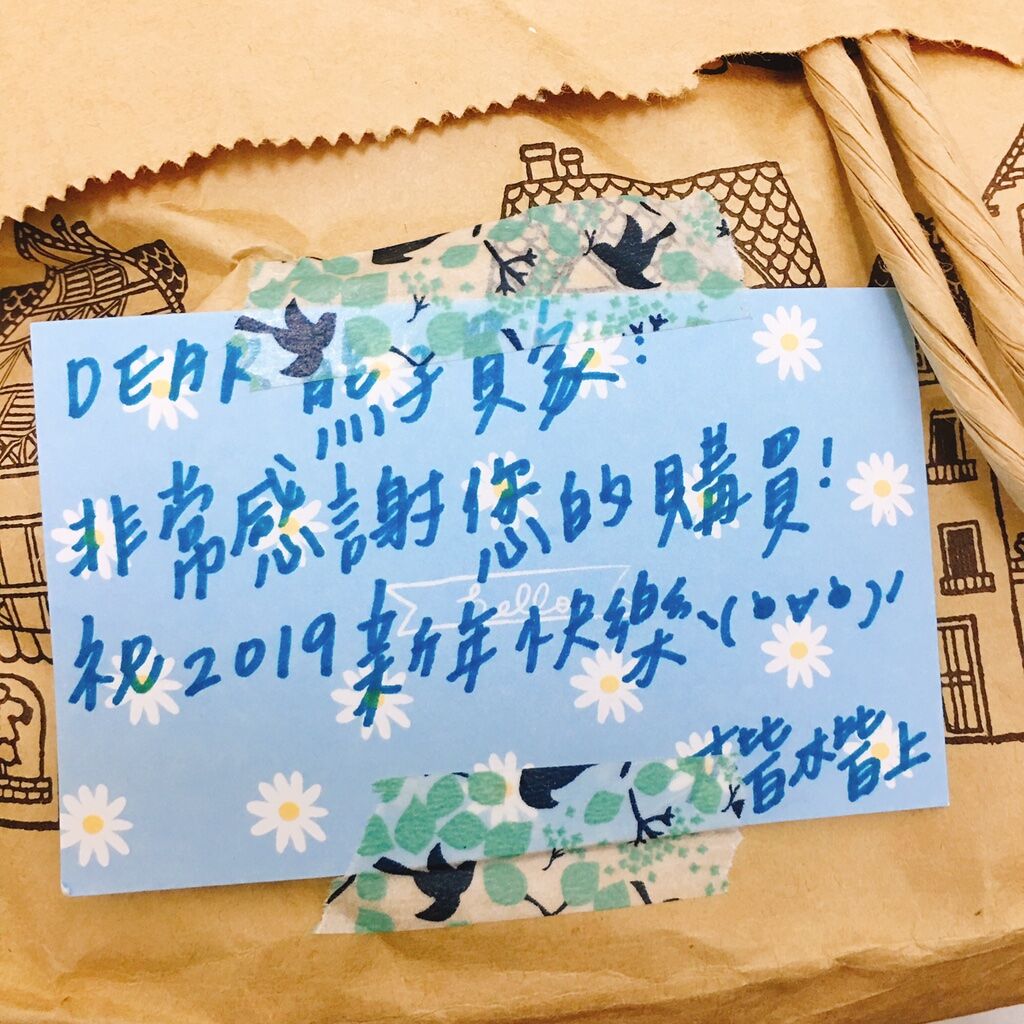 DEAR 熊子買家:
非常感謝您的購買!
hello
祝2019新年快樂、(•v•)ノ
楷楷上